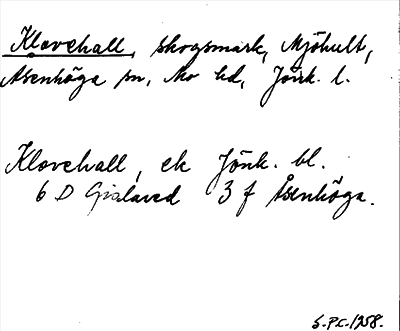 Klovehall, skogsmark, Mjöhult,
Åsenhöga sn, Mo hd, Jönk. l.
Klovehall, ek Jönk. bl.
6 D Gislaved 3 f Åsenhöga.
S.P.L. 1958.